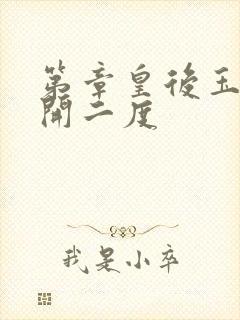 第章皇後玉
開二度
我是小卒